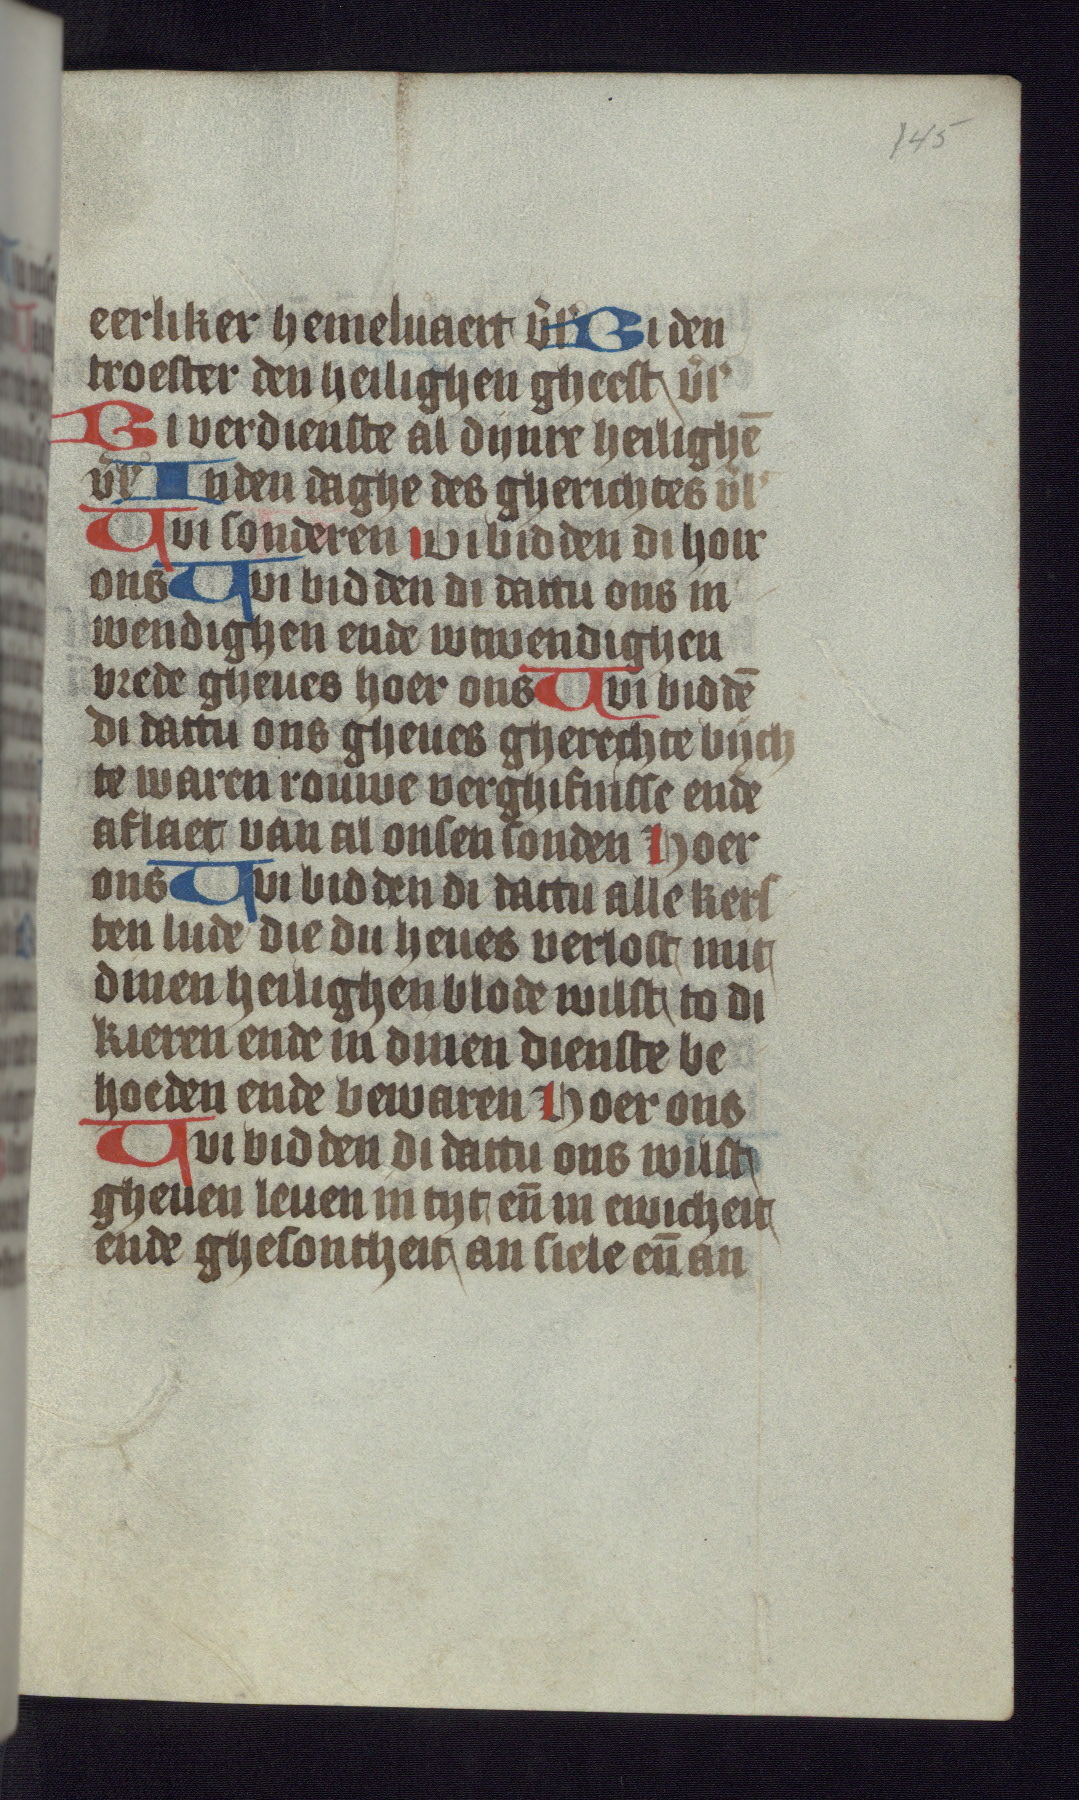 145
eerliker hemeluaert v̄l' Bi den
troester den heilighen gheest v̄l'
Bi verdienste al dijnre heilighē
v̄l' Inden daghe des gherichtes v̄l'
Wi sonderen wi bidden di hoir
ons Wi bidden di dattu ons in
wendighen ende wtwendighen
vrede gheues hoer ons Wi biddē
di dattu ons gheues gherechte bijch
te waren rouwe verghifnisse ende
aflaet van al onsen sonden Hoer
ons Wi bidden di dattu alle kers
ten lude die du heues verlost mit
dinen heilighen blode wilst to di
kieren ende in dinen dienste be
hoeden ende bewaren Hoer ons
Wi bidden di dattu ons wilst
gheuen leuen in tijt eñ in ewicheit
ende ghesontheit an siele eñ an